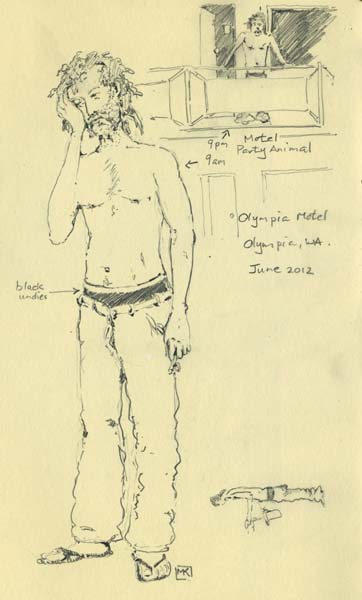 9pm
Motel
Party Animal
9am
Olympia Motel
Olympia, WA.
June 2012
black
undies
MK